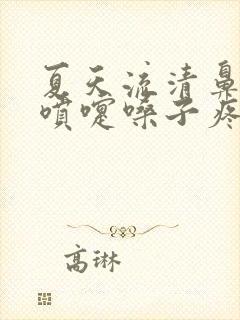 夏天流清鼻
喷嚏嗓子疼
高琳